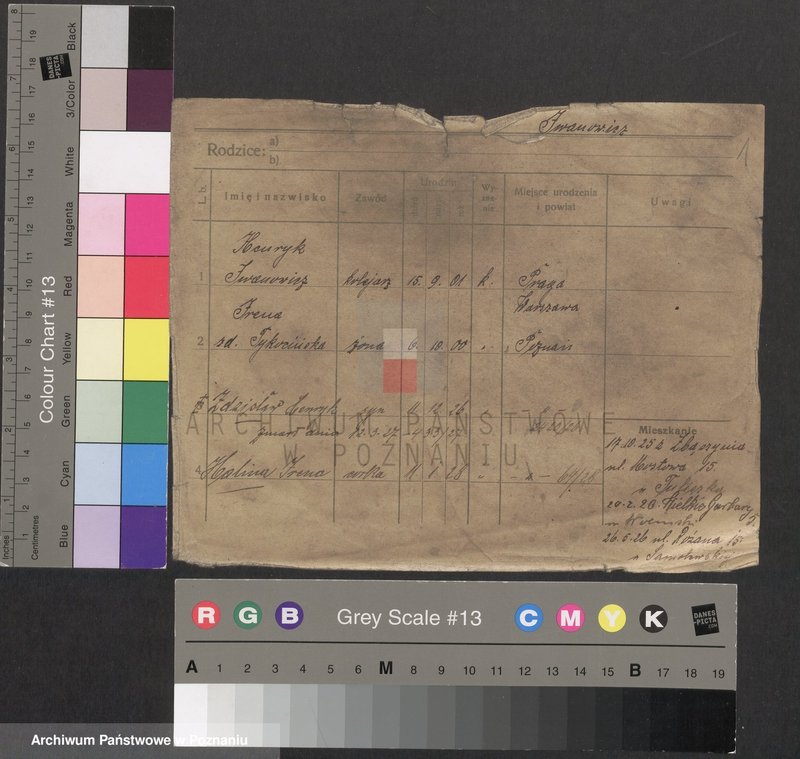 Iwanowicz
1
Rodzice: a)
b)
L. b.
Imię i nazwisko
Zawód
Urodzin
Wy-
zna-
nie
Miejsce urodzenia
i powiat
Uwagi
Henryk
1 Iwanowicz kolejarz 15. 9. 01 k. Praga
Irena Warszawa
2 zd. Tykocińska żona 6. 10. 00 " Poznań
3 Zdzisław Henryk syn 11 12 26
zmarł dnia 12. 3. 27
4 Halina Irena córka 11 1 28 " - " -
Mieszkanie
17.10.25 z Zbąszynia
ul. Mostowa 15.
20.2.26 Wielkie Garbary
5.
26.5.26 ul. Różana 15.
ARCHIWUM PAŃSTWOWE
W POZNANIU
Colour Chart #13
Black
3/Color
White
Magenta
Red
Yellow
Green
Cyan
Blue
Inches
Centimetres
1 2 3 4 5 6 7 8
1 2 3 4 5 6 7 8 9 10 11 12 13 14 15 16 17 18 19
DANES
-PICTA
.COM
R G B Grey Scale #13 C M Y K
DANES
-PICTA
.COM
A 1 2 3 4 5 6 M 8 9 10 11 12 13 14 15 B 17 18 19
Archiwum Państwowe w Poznaniu